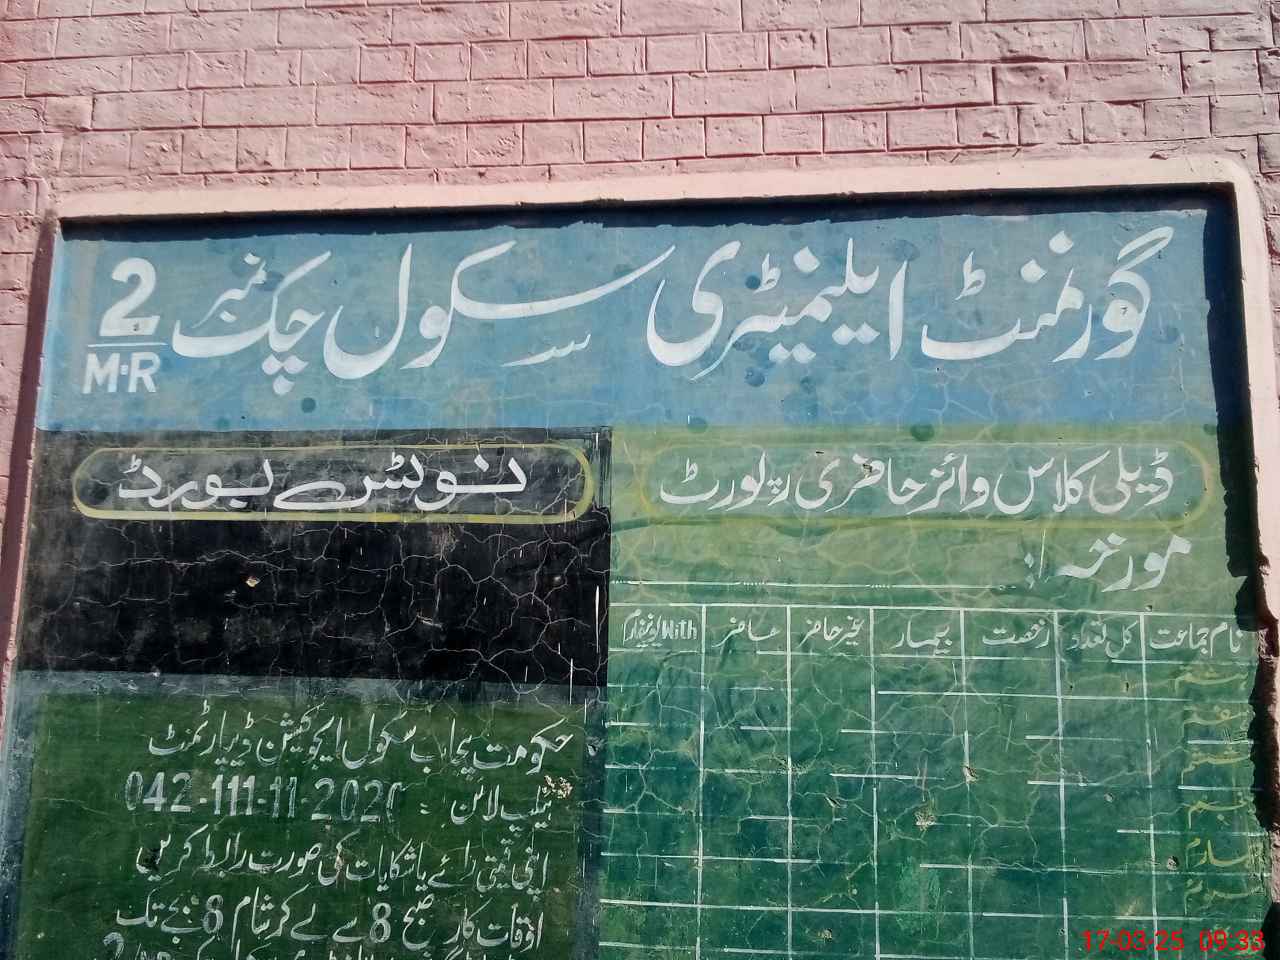 گورنمنٹ ایلیمیٹری سکول چک نمبر 2/M-R
ڈیلی کلاس وائز حاضری رپورٹ
مورخہ:
نام جماعت کل تعداد رخصت بیمار غیر حاضر حاضر With یونیفارم
ہفتم
پنجم
چہارم
سوئم
نوٹس بورڈ
حکومت پنجاب سکول ایجوکیشن ڈیپارٹمنٹ
ہیلپ لائن : 042-111-11-2020
اپنی قیمتی رائے یا شکایات کی صورت رابطہ کریں
اوقات کار صبح 8 سے لے کر شام 8 بجے تک
17-03-25 09:33